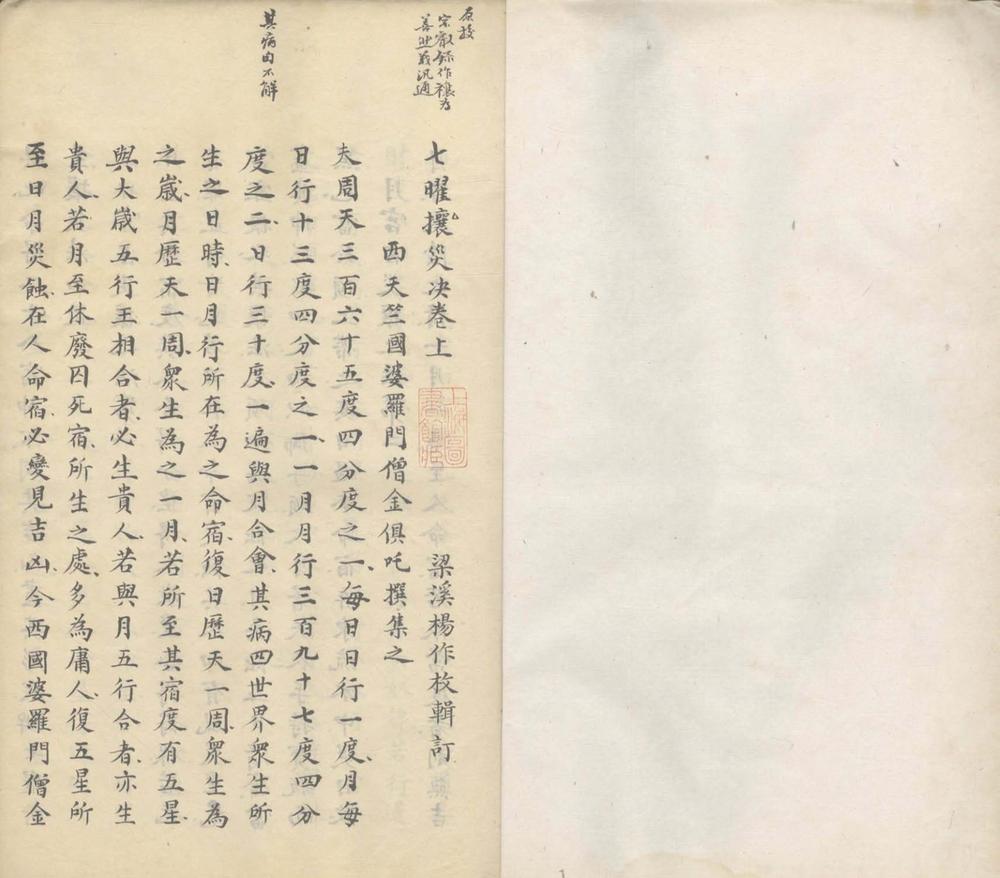 原校
宗叡錄作穰為
善此義汎通
其病由不解
七曜攘災决卷上 梁溪楊作枚輯訂
西天竺國婆羅門僧金俱吒撰集之
夫周天三百六十五度四分度之一每日日行一度月每
日行十三度四分度之一一月月行三百九十七度四分
度之二日行三十度一遍與月合會其病四世界衆生所
生之日時日月行所在為之命宿復日歷天一周衆生為
之歲月歷天一周衆生為之一月若所至其宿度有五星
與大歲五行王相合者必生貴人若與月五行合者亦生
貴人若月至休廢囚死宿所生之處多為庸人復五星所
至日月災蝕在人命宿必變見吉凶今西國婆羅門僧金
上海圖
書館藏